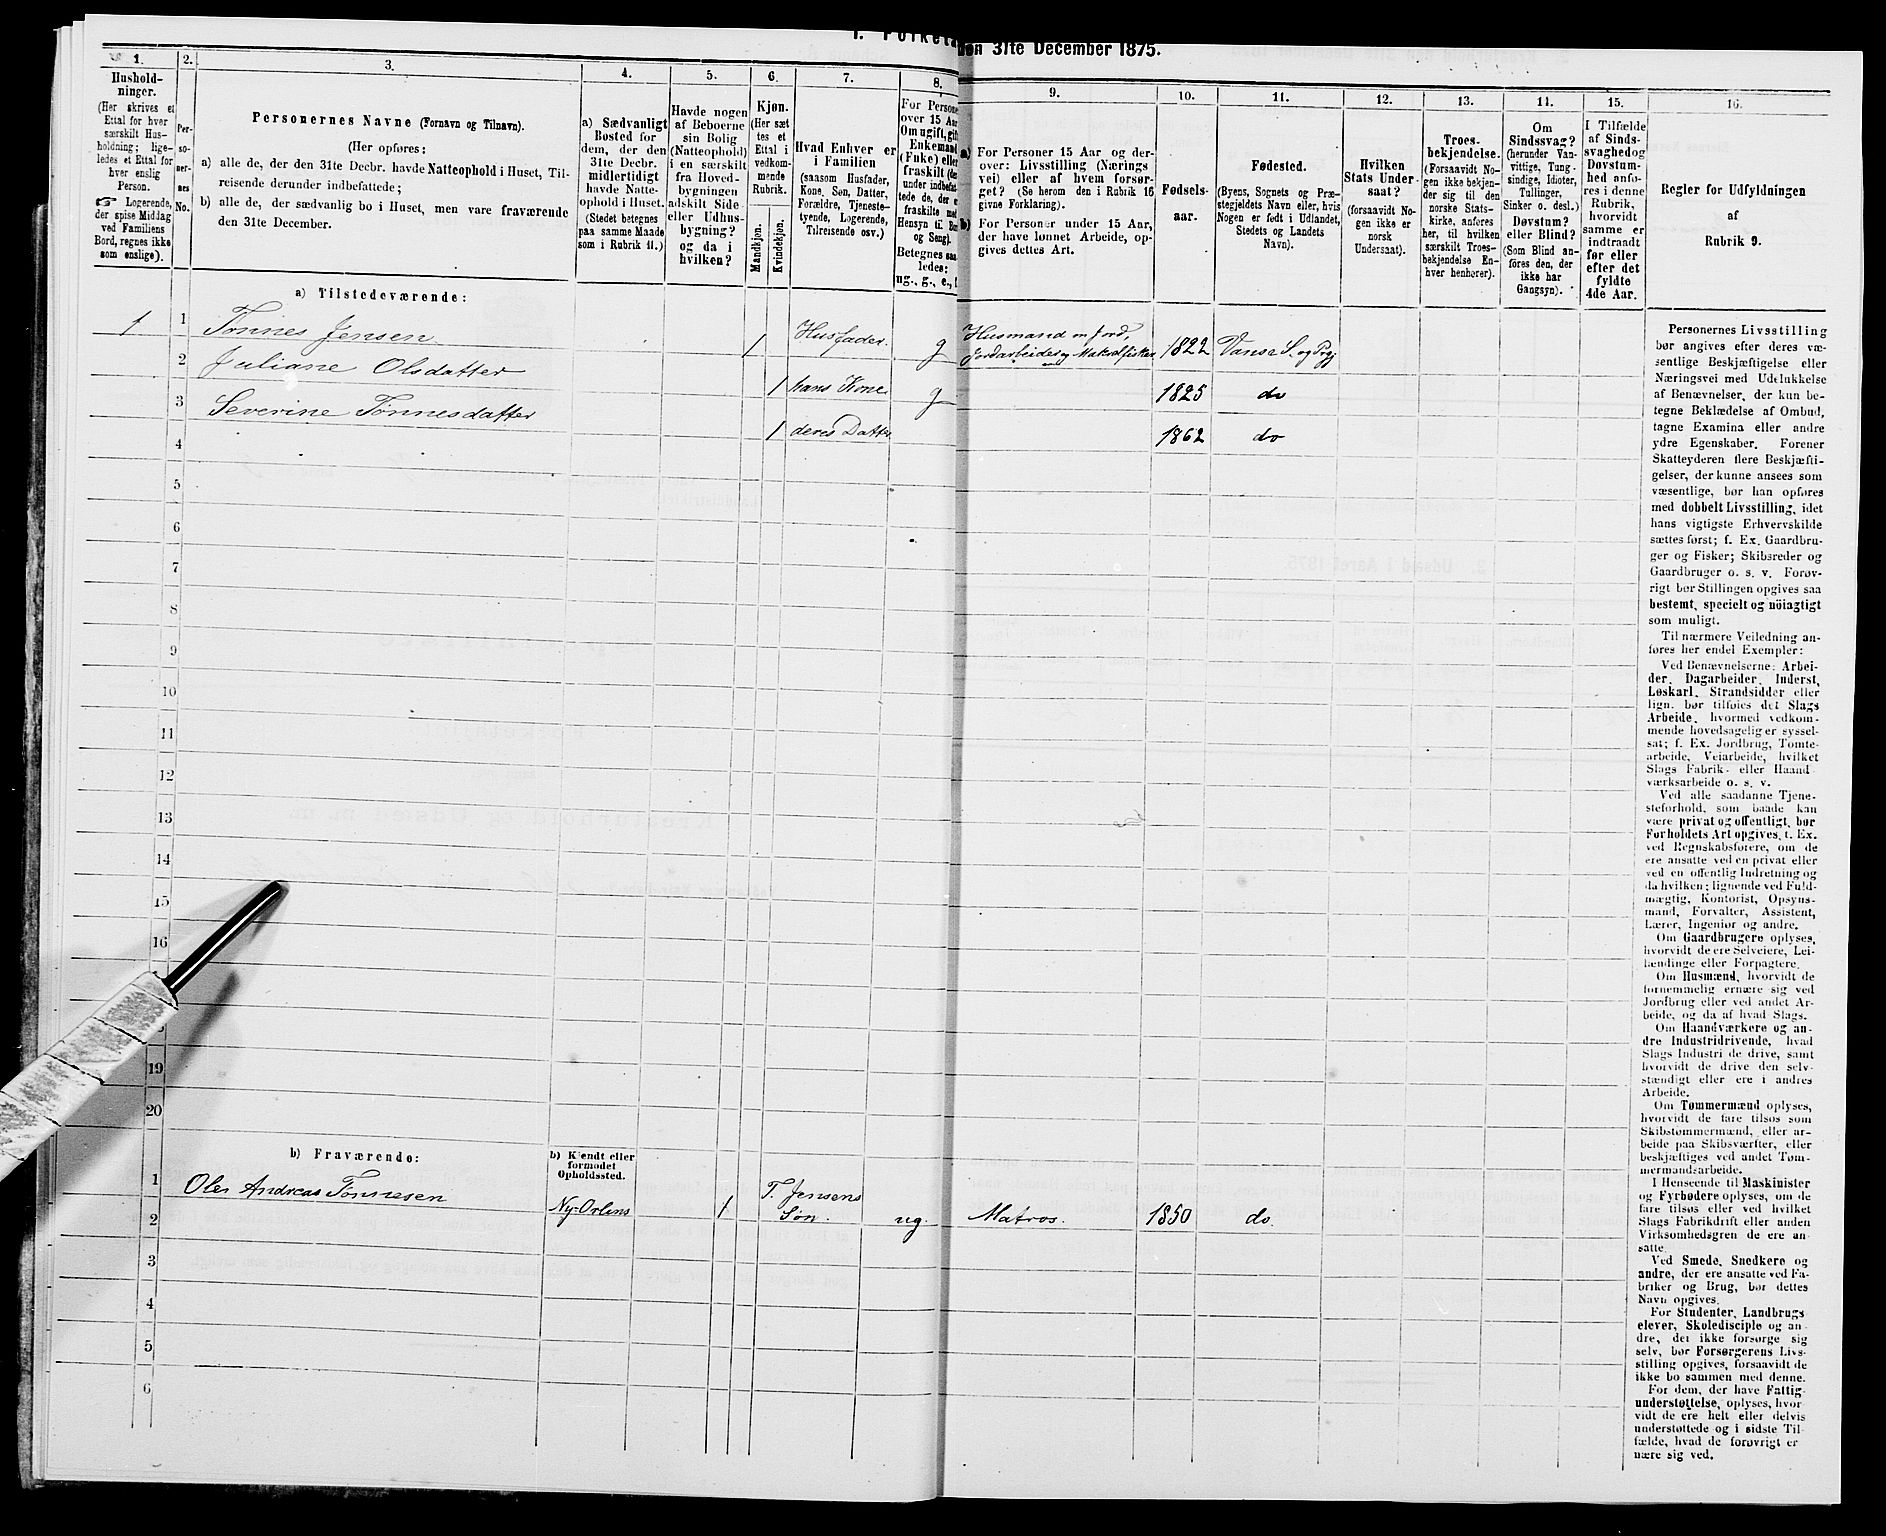 den 31te December 1875.
1.
Hushold-
ninger.
(Her skrives et
Ettal for hver
særskilt Hus-
holdning; lige-
ledes et Ettal for
hver enslig
Person.
☞ Logerende,
der spise Middag
ved Familiens
Bord, regnes ikke
som enslige).
2.
Per-
so-
ner-
nes
No.
3.
Personernes Navne (Fornavn og Tilnavn).
(Her opføres:
a) alle de, der den 31te Decbr. havde Natteophold i Huset, Til-
reisende derunder indbefattede;
b) alle de, der sædvanlig bo i Huset, men vare fraværende
den 31te December.
4.
a) Sædvanligt
Bosted for
dem, der den
31te Decbr.
midlertidigt
havde Natte-
ophold i Huset.
(Stedet betegnes
paa samme Maade
som i Rubrik 11.)
5.
Havde nogen
af Beboerne
sin Bolig
(Natteophold)
i en særskilt
fra Hoved-
bygningen
adskilt Side
eller Udhus-
bygning?
og da i
hvilken?
6.
Kjøn.
(Her sæt
tes et
Ettal i
vedkom-
mende
Rubrik.
Mandkjøn.
Kvindekjøn.
7.
Hvad Enhver er
i Familien
(saasom Husfader,
Kone, Søn, Datter,
Forældre, Tjeneste-
tyende, Logerende,
Tilreisende osv.)
8.
For Persone
over 15 Aar
Om ugift, gift
Enkemand
(Enke) elle
fraskilt (de
under indbefat
tede de, der e
fraskilte me
Hensyn til Bo
og Seng).
Betegnes saa
ledes:
ug., g., e., f.
9.
a) For Personer 15 Aar og der-
over: Livsstilling (Nærings
vei) eller af hvem forsør-
get? (Se herom den i Rubrik 16
givne Forklaring).
b) For Personer under 15 Aar,
der have lønnet Arbeide, op-
gives dettes Art.
10.
Fødsels-
aar.
11.
Fødested.
(Byens, Sognets og Præ-
stegjeldets Navn eller, hvis
Nogen er født i Udlandet,
Stedets og Landets
Navn).
12.
Hvilken
Stats Under
saat?
(forsaavidt No-
gen ikke er
norsk
Undersaat).
13.
Troes-
bekjendelse.
(Forsaavidt No-
gen ikke bekjen-
der sig til den
norske Stats-
kirke, anføres
her, til hvilken
særskilt Troes-
bekjendelse En-
hver henhører).
14.
Om
Sindssvag?
(herunder Van-
vittige, Tung-
sindige, Idioter,
Tullinger,
Sinker o. desl.)
Døvstum?
eller Blind?
(Som Blind an-
føres den, der
ikke har
Gangsyn).
15.
I Tilfælde
af Sinds-
svaghed og
Døvstum-
hed anfø-
res i denne
Rubrik,
hvorvidt
samme er
indtraadt
før eller
efter det
fyldte
4de Aar.
16.
Regler for Udfyldningen
af
Rubrik 9.
a) Tilstedeværende:
1 1 Tønnes Jensen 1 Husfader g Husmand m Jord,
Jordarbeider og Makrelfisker 1822 Vanse S. og Prgj
2 Juliane Olsdatter 1 hans Kone g 1825 do
3 Severine Tønnesdatter 1 deres Datter 1862 do
4
5
6
7
8
9
10
11
12
13
14
15
16
19
20
b) Fraværende:
b) Kjendt eller
formodet
Opholdssted.
1 Ole Andreas Tønnesen Ny Orlins 1 T. Jensens
Søn. ug. Matros. 1850 do.
2
3
4
5
6
Personernes Livsstilling
bør angives efter deres væ-
sentlige Beskjæftigelse eller
Næringsvei med Udelukkelse
af Benævnelser, der kun be-
tegne Beklædelse af Ombud,
tagne Examina eller andre
ydre Egenskaber. Forener
Skatteyderen flere Beskjæfti-
gelser, der kunne ansees som
væsentlige, bør han opføres
med dobbelt Livsstilling, idet
hans vigtigste Erhvervskilde
sættes først; f. Ex. Gaardbru-
ger og Fisker; Skibsreder og
Gaardbruger o. s. v. Forøv-
rigt bør Stillingen opgives saa
bestemt, specielt og nöiagtigt
som muligt.
Til nærmere Veiledning an-
føres her endel Exempler:
Ved Benævnelserne: Arbei-
der, Dagarbeider, Inderst,
Løskarl, Strandsidder eller
lign. bør tilføies det Slags
Arbeide, hvormed vedkom-
mende hovedsagelig er syssel-
sat; f. Ex. Jordbrug, Tomte-
arbeide, Veiarbeide, hvilket
Slags Fabrik- eller Haand
værksarbeide o. s. v.
Ved alle saadanne Tjene-
steforhold, som baade kan
være privat og offentligt, bør
Forholdets Art opgives, t. Ex.
ved Regnskabsførere, om de
ere ansatte ved en privat eller
ved en offentlig Indretning og
da hvilken; lignende ved Fuld-
mægtig, Kontorist, Opsyns-
mand, Forvalter, Assistent,
Lærer, Ingeniør og andre.
Om Gaardbrugere oplyses,
hvorvidt de ere Selveiere, Lei-
lændinge eller Forpagtere.
Om Husmænd, hvorvidt de
fornemmelig ernære sig ved
Jordbrug eller ved andet Ar-
beide, og da af hvad Slags.
Om Haandværkere og an-
dre Industridrivende, hvad
Slags Industri de drive, samt
hvorvidt de drive den selv-
stændigt eller ere i andres
Arbeide.
Om Tømmermænd oplyses,
hvorvidt de fare tilsøs som
Skibstømmermænd, eller ar-
beide paa Skibsværfter, eller
beskjæftiges ved andet Tøm-
mermandsarbeide.
I Henseende til Maskinister
og Fyrbødere oplyses, om de
fare tilsøs eller ved hvilket
Slags Fabrikdrift eller anden
Virksomhedsgren de ere an-
satte.
Ved Smede, Snedkere og
andre, der ere ansatte ved Fa-
briker og Brug, bør dettes
Navn opgives.
For Studenter, Landbrugs
elever, Skoledisciple og an-
dre, der ikke forsørge sig
selv, bør Forsørgerens Livs-
stilling opgives, forsaavidt de
ikke bo sammen med denne.
For dem, der have Fattig-
understøttelse, oplyses, hvor-
vidt de ere helt eller delvis
understøttede og i sidste Til-
fælde, hvad de forøvrigt er
nære sig ved.